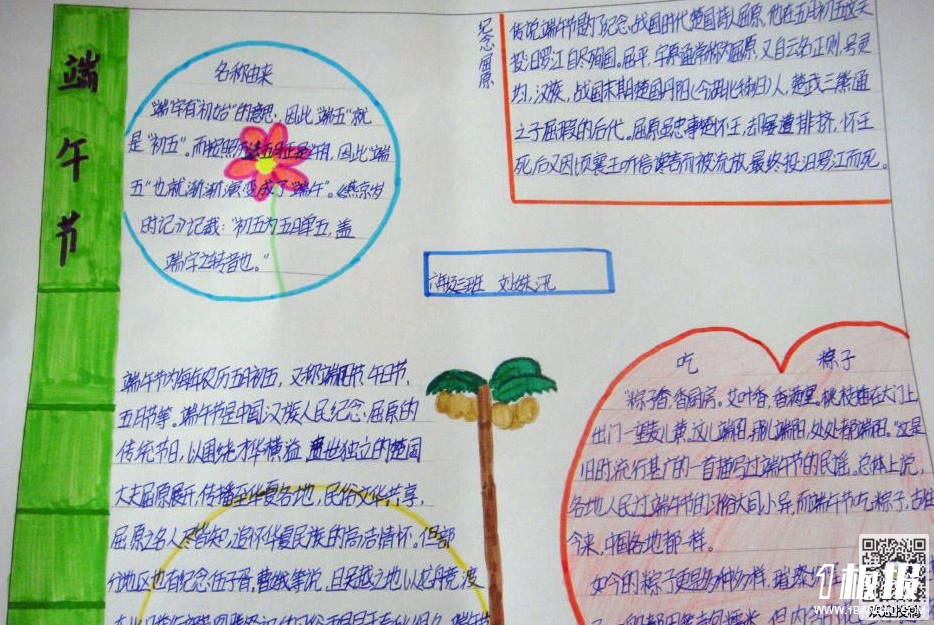 端午节
名称由来
"端"字有"初始"的意思,因此"端五"就
是"初五"。而按照历法五月正是"午"月,因此"端
五"也就渐渐演变成了"端午"。《燕京岁
时记》记载:"初五为五月单五,盖
端字之转音也。"
纪念屈原
传说端午节是为了纪念战国时代楚国诗人屈原,他在五月初五这天
投汨罗江自尽殉国。屈平,字原,通常称为屈原,又自云名正则,号灵
均,汉族,战国末期楚国丹阳(今湖北秭归)人,楚武王熊通
之子屈瑕的后代。屈原虽忠事楚怀王,却屡遭排挤,怀王
死后又因顷襄王听信谗言而被流放,最终投汨罗江而死。
六年级三班
端午节为每年农历五月初五,又称端阳节、午日节、
五月节等。端午节是中国汉族人民纪念屈原的
传统节日,以围绕才华横溢、遗世独立的楚国
大夫屈原展开,传播至华夏各地,民俗文化共享,
屈原之名人尽皆知,追怀华夏民族的高洁情怀。但部
分地区也有纪念伍子胥、曹娥等说,且吴越之地以龙舟竞渡
吃 粽子
"粽子香,香厨房。艾叶香,香满堂。桃枝插在大门上,
出门一望麦儿黄。这儿端阳,那儿端阳,处处都端阳。"这是
旧时流行甚广的一首描写过端午节的民谣。总体上说,
各地人民过端午节的习俗大同小异,而端午节吃粽子,古往
今来,中国各地都一样。
如今的粽子更是多种多样,璀
1板报
WWW.1BANBAO.COM
欢迎投稿